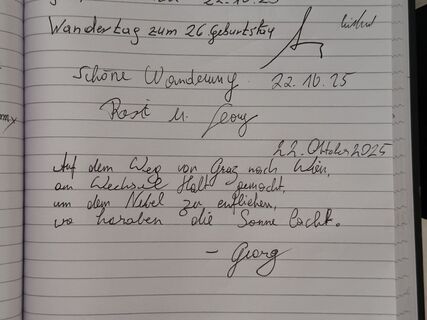 22.10.25
Wandertag zum 26. Geburtstag
Schöne Wanderung 22.10.25
Rosi u. Georg
22. Oktober 2025
Auf dem Weg von Graz nach Wien,
am Wechsel Halt gemacht,
um dem Nebel zu entfliehen,
wo heroben die Sonne lacht.
– Georg